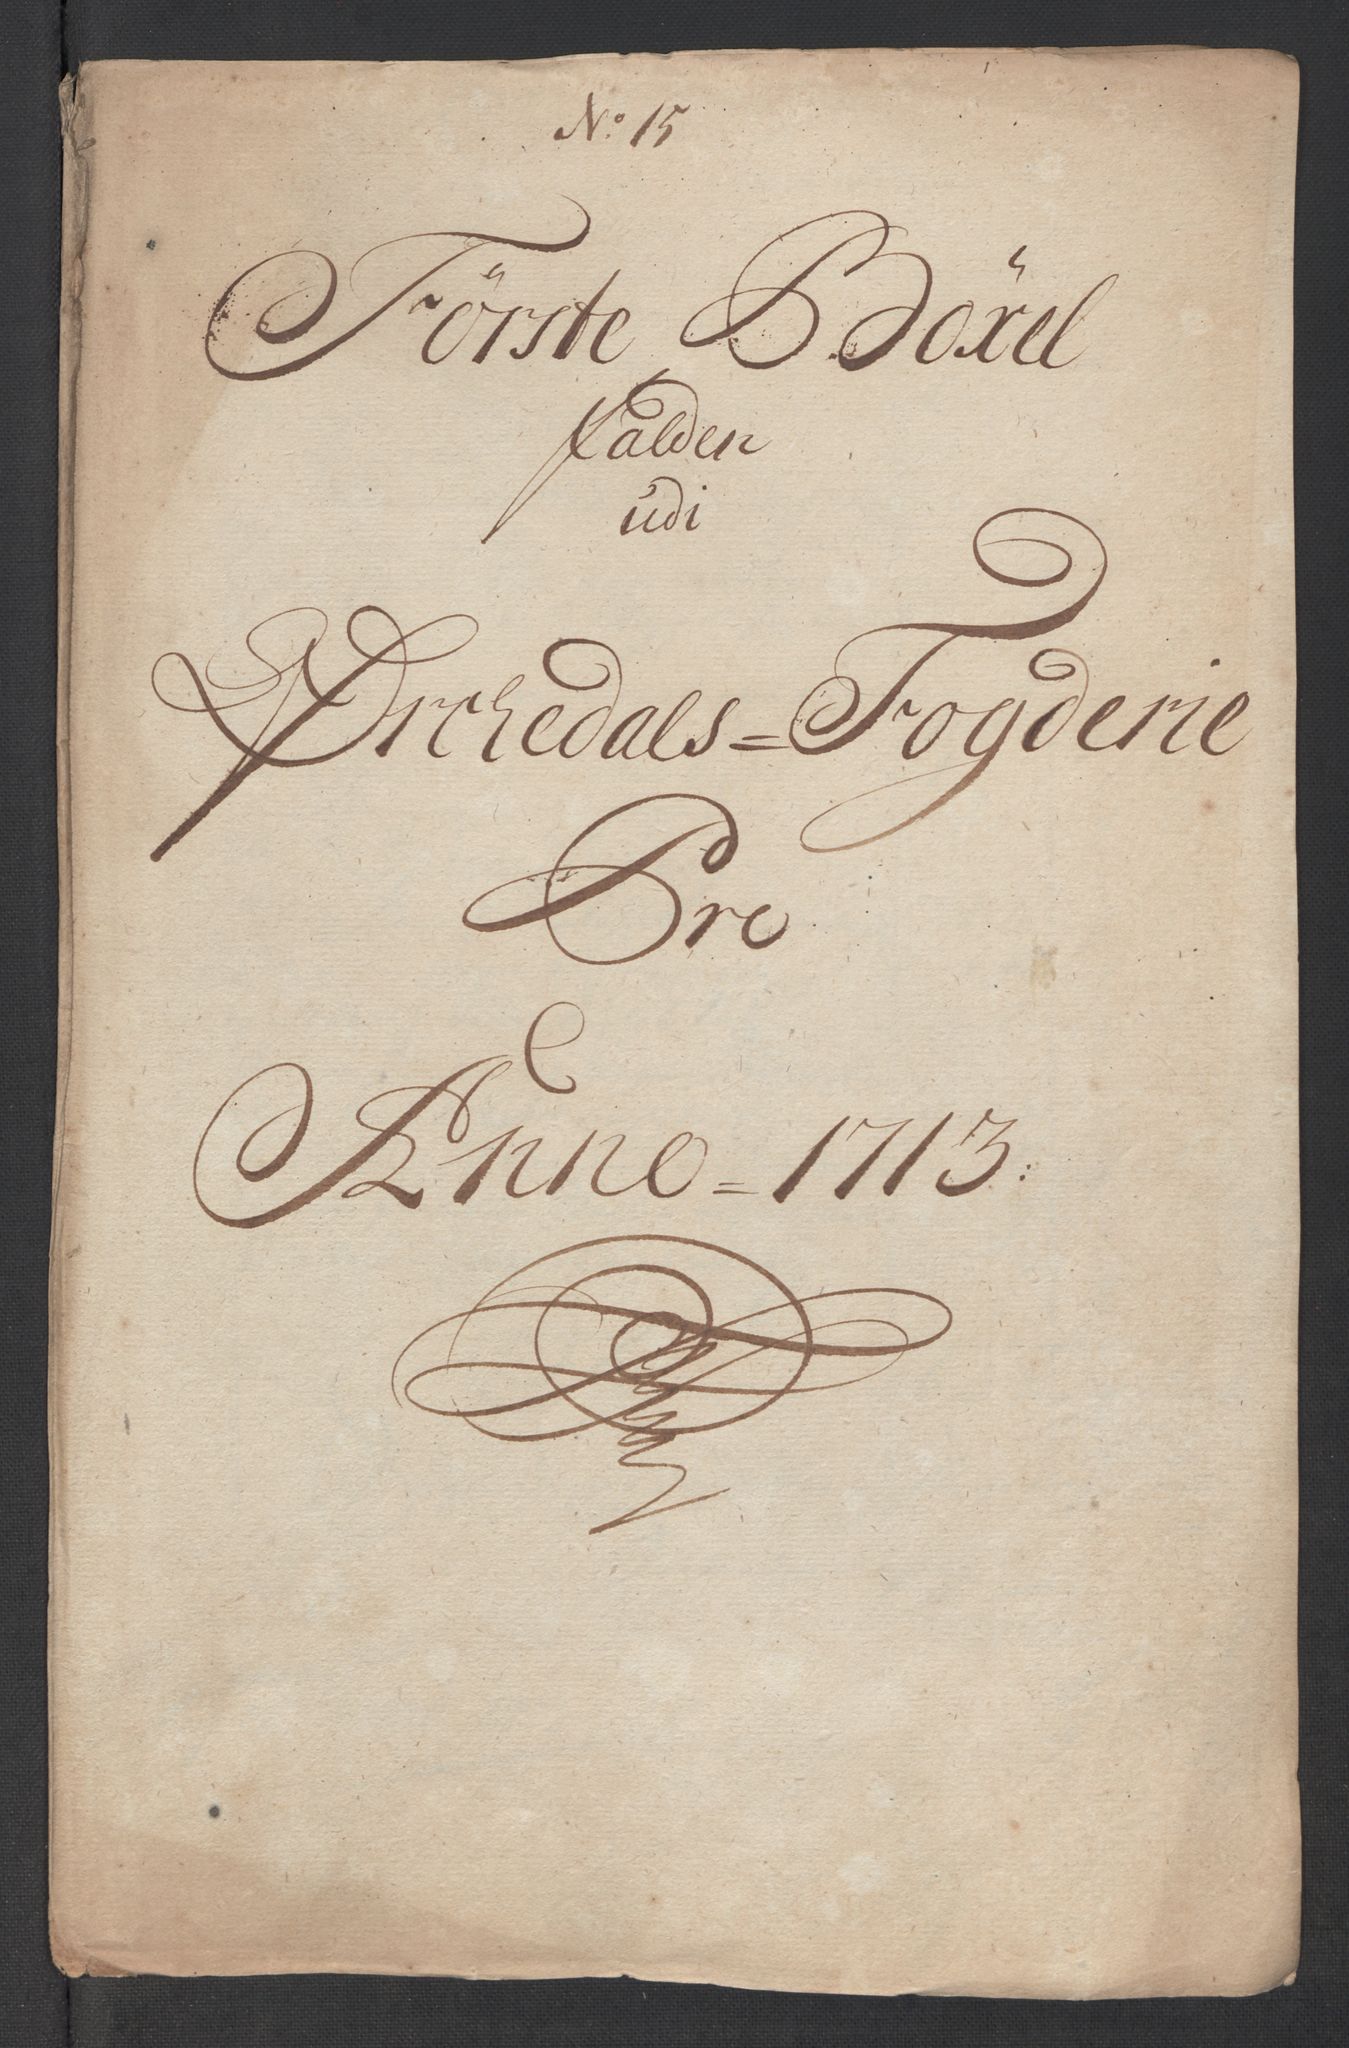 No 15
Förste Böxel
falden
udi
Ørchedals = Fogderie
Pro
Anno = 1713: